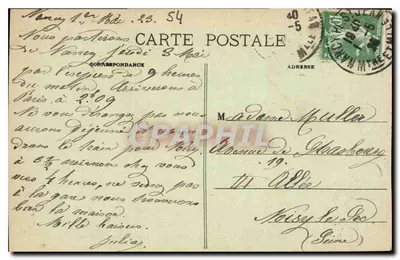 Nancy 1er Mai 23. 54
Nous partirons
de Nancy Jeudi 3 Mai
CARTE POSTALE
CORRESPONDANCE
ADRESSE
par l'express de 9 heures
du matin, arriverons à
Paris à 2h09
Ne vous dérangez pas nous
aurons déjeuné
le train pour
à 3h½ arriverons chez vous
vers 4 heures, ne venez pas
à la gare nous trouverons
bien la maison.
Mille baisers
Julia
Madame Muller
Avenue de Strasbourg
19.
III Allée
Noisy le Sec
(Seine)
CPARAMA